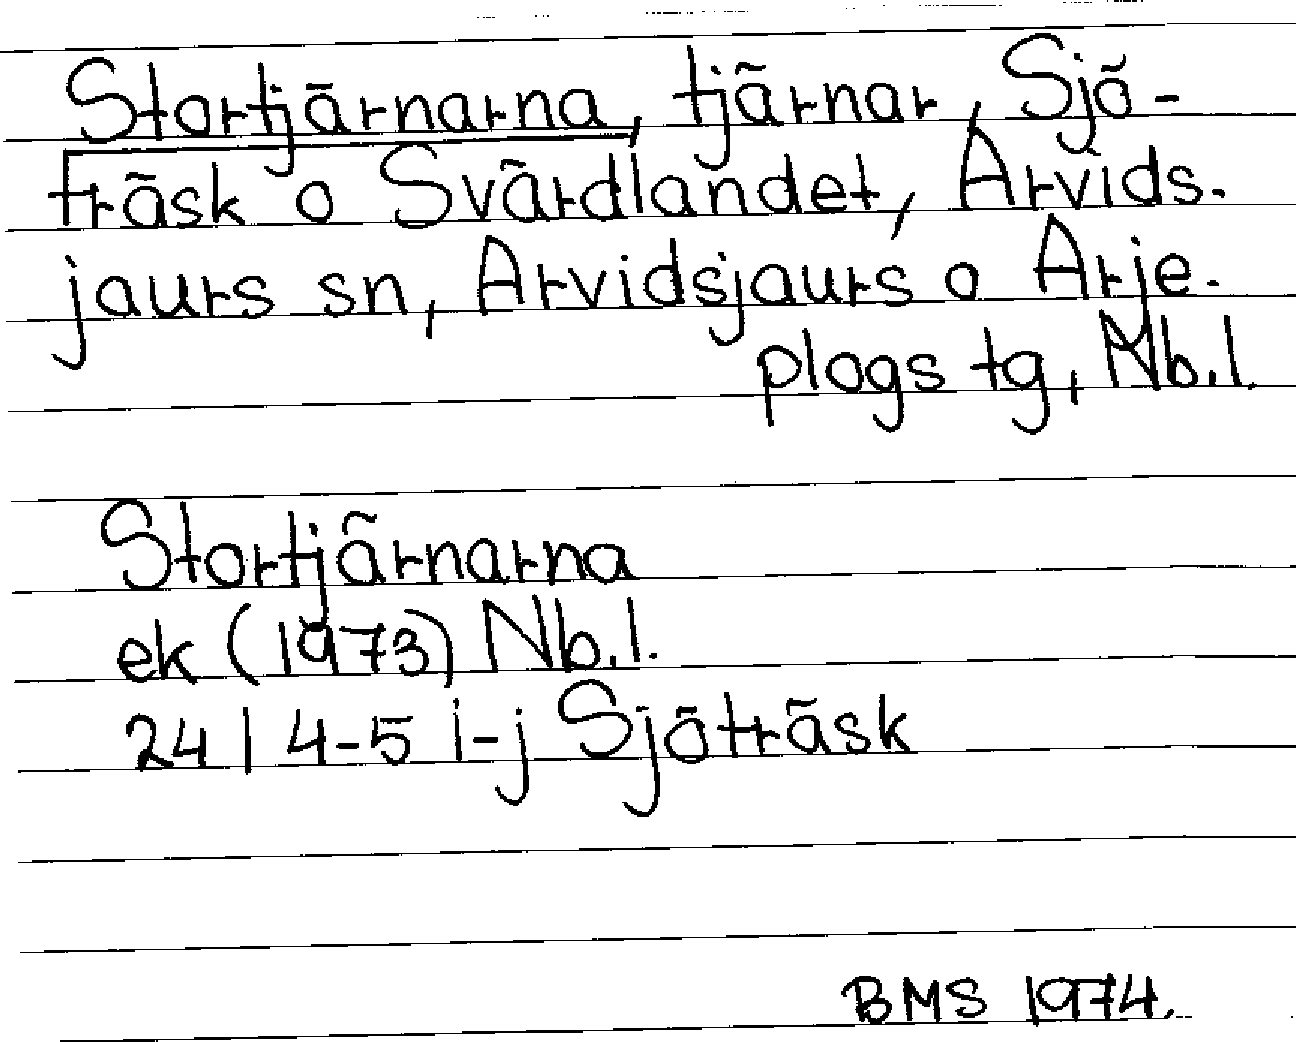 Stortjärnarna, tjärnar, Sjö-
träsk o Svärdlandet, Arvids-
jaurs sn, Arvidsjaurs o Arje-
plogs tg, Nb.l.
Stortjärnarna
ek (1973) Nb.l.
24 I 4-5 i-j Sjöträsk
BMS 1974.